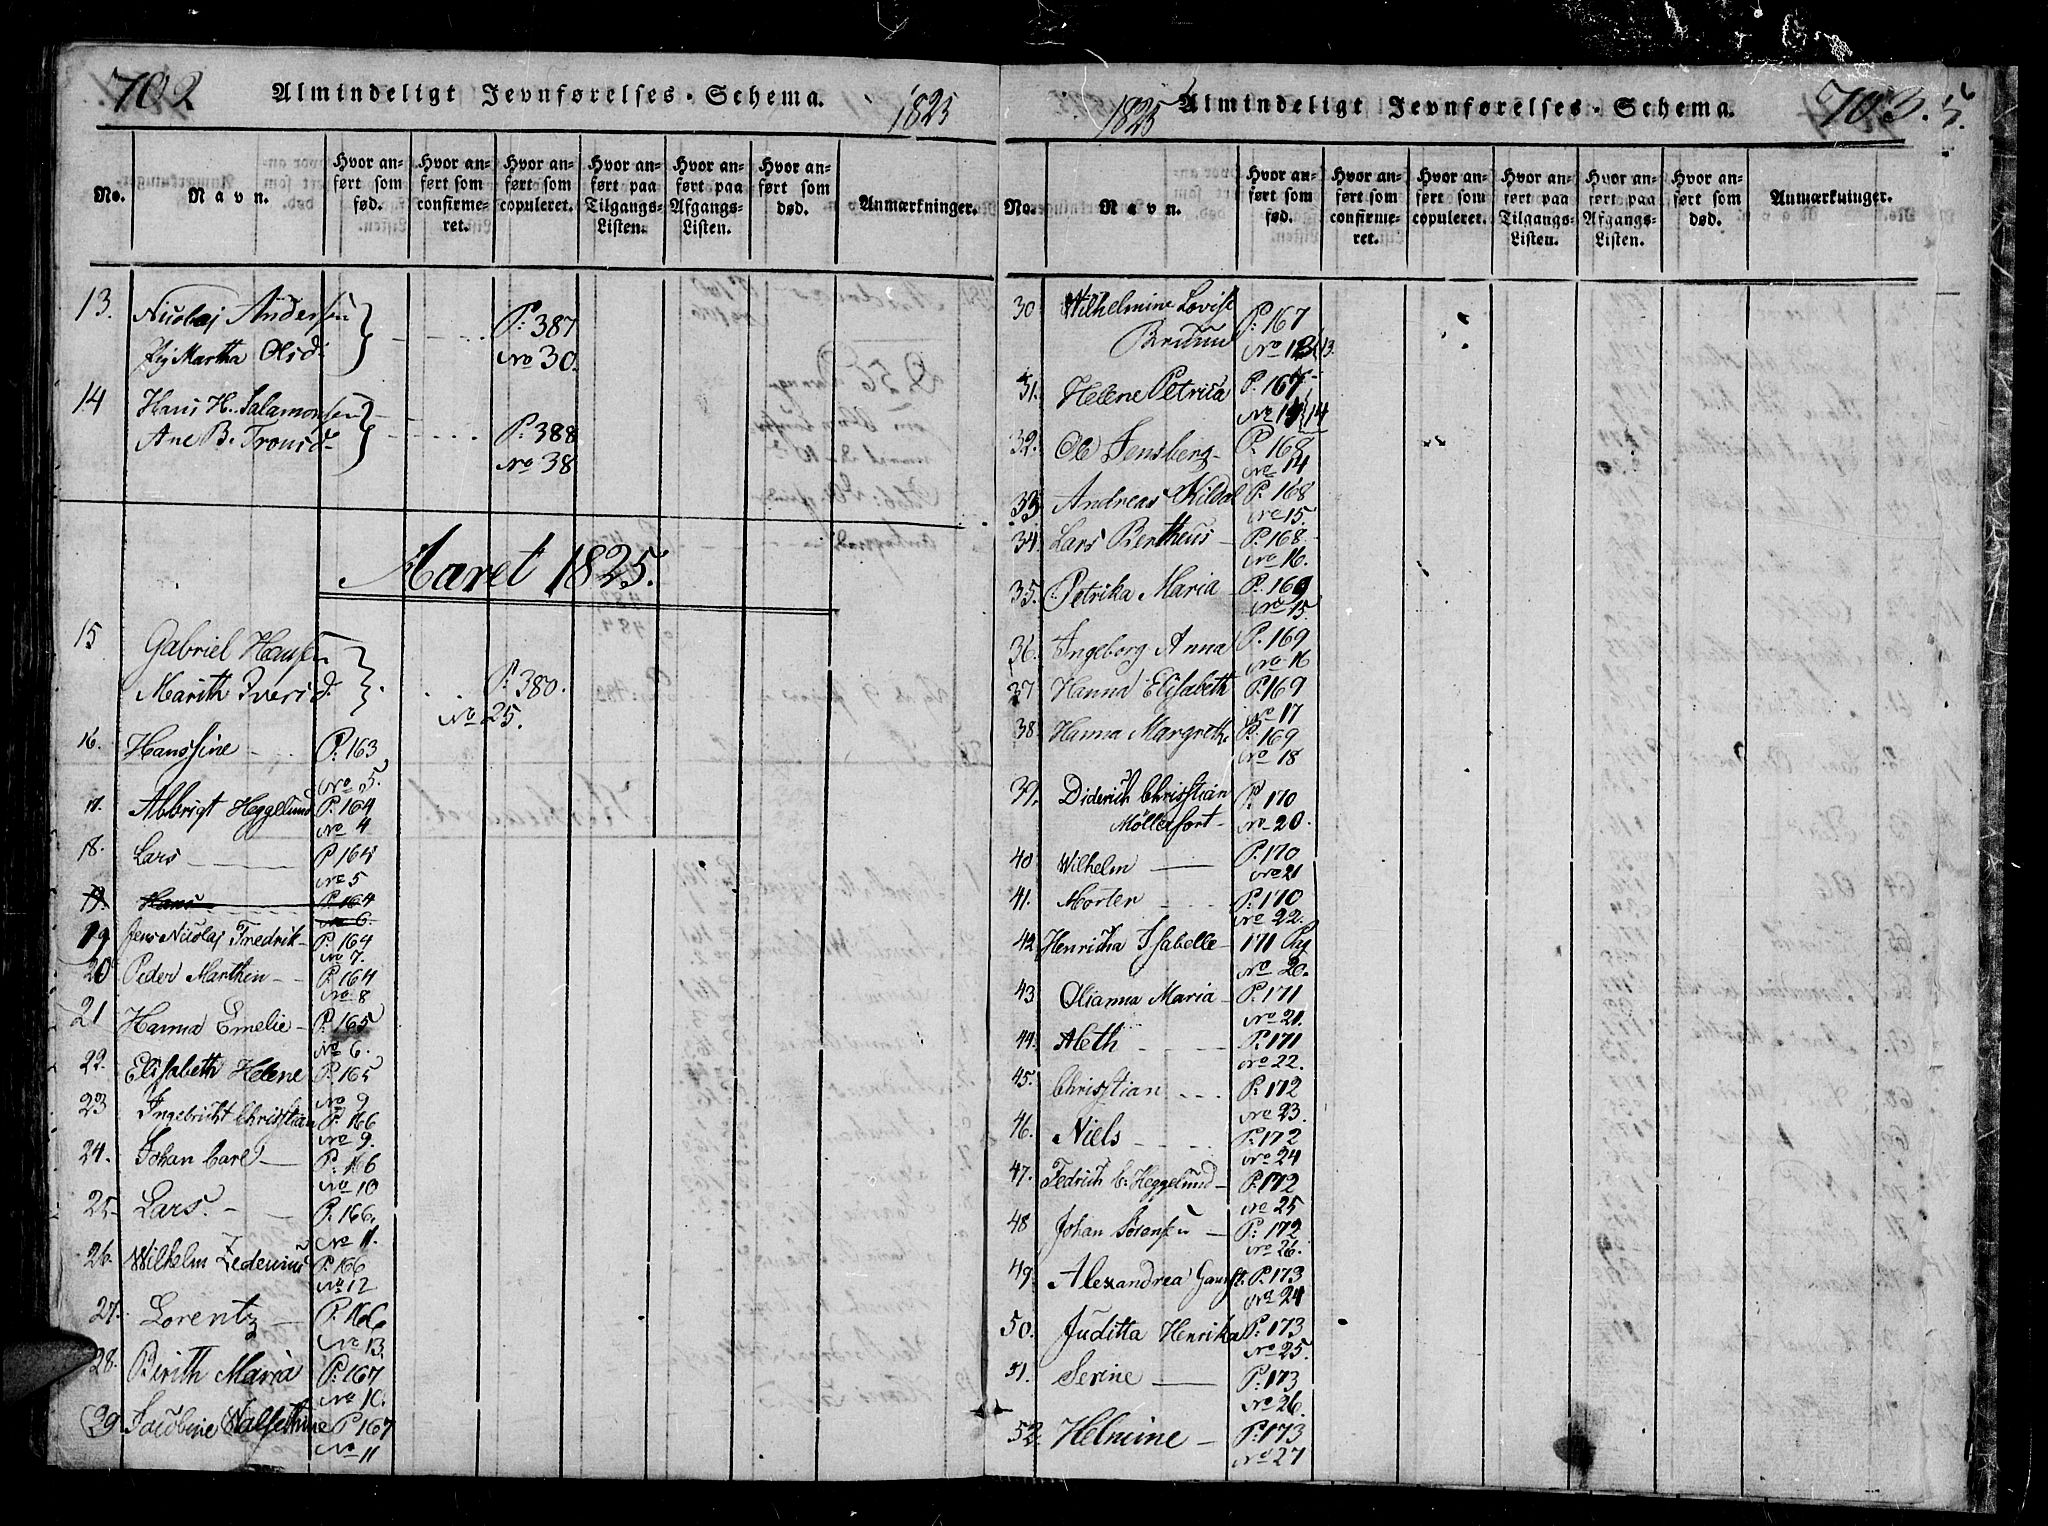 702 Almindeligt Jevnførelses-Schema. 1825
No. Navn. Hvor anført som fød. Hvor anført som confirmeret. Hvor anført som copuleret. Hvor anført paa Tilgangs-Listen. Hvor anført paa Afgangs-Listen. Hvor anført som død. Anmærkninger.
13. Nicolaj Andersen P: 387
Pig Martha Olsd. No 30.
14 Hans H. Salamonsen
Ane B. Tronsd P: 388
No 38
Aaret 1825.
15 Gabriel Hansen
Marith Iversd. P: 380.
No 25.
16. Hanssine P: 163
No 5.
17. Albrigt Heggelund P. 164
No 4
18. Lars P 164
No 5
19. Hans P. 164
No 6.
19 Jens Nicolaj Fredrik P. 164
No 7.
20 Peder Marthin P. 164
No 8
21 Hanna Emelie P. 165
No 6.
22. Elisabeth Helene P. 165
No 9
23 Ingebricht Christian P. 166
No 9.
24. Johan Carl P. 166
No 10
25 Lars. P. 166.
No 11.
26. Wilhelm P. 166
No 12
27. Lorentz P. 166
No 13.
28. Birith Maria P. 167
No 10.
29 Jacobine P 167
No 11
1825 Almindeligt Jevnførelses-Schema. 703. 5.
No. Navn. Hvor anført som fød. Hvor anført som confirmeret. Hvor anført som copuleret. Hvor anført paa Tilgangs-Listen. Hvor anført paa Afgangs-Listen. Hvor anført som død. Anmærkninger.
30 Wilhelmine Lovise P: 167
Bruun No 13.
31. Helene Petrica P. 167
No 14
32. Ole Jensberg P. 168
No 14
33 Andreas Kildal P. 168
No 15.
34. Lars Bertheus P. 168
No 16.
35. Petrika Maria P. 169
No 15.
36. Ingeborg Anna P. 169
No 16
37 Hanna Elisabeth P. 169
No 17
38. Hanna Margrethe P. 169
No 18
39. Diderich Christian P: 170
Møllerfort No 20.
40 Wilhelm P. 170
No 21
41. Morten P. 170
No 22.
42 Henricha Isabelle 171 Pag
No 20.
43 Olianna Maria P. 171
No 21.
44. Aleth P: 171
No 22.
45. Christian P. 172
No 23.
46. Niels P. 172
No 24
47. Fedrich C. Heggelund P. 172
No 25
48 Johan Sørensen P. 172
No 26.
49 Alexandrea P. 173
No 24
50. Juditta Henrika P: 173
No 25.
51. Serine P: 173
No 26.
52. Helmine P: 173
No 27